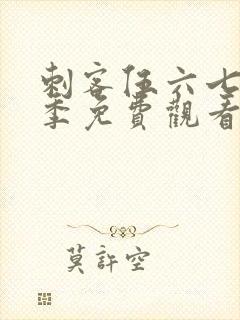 刺客伍六七
季免費觀看
莫許空